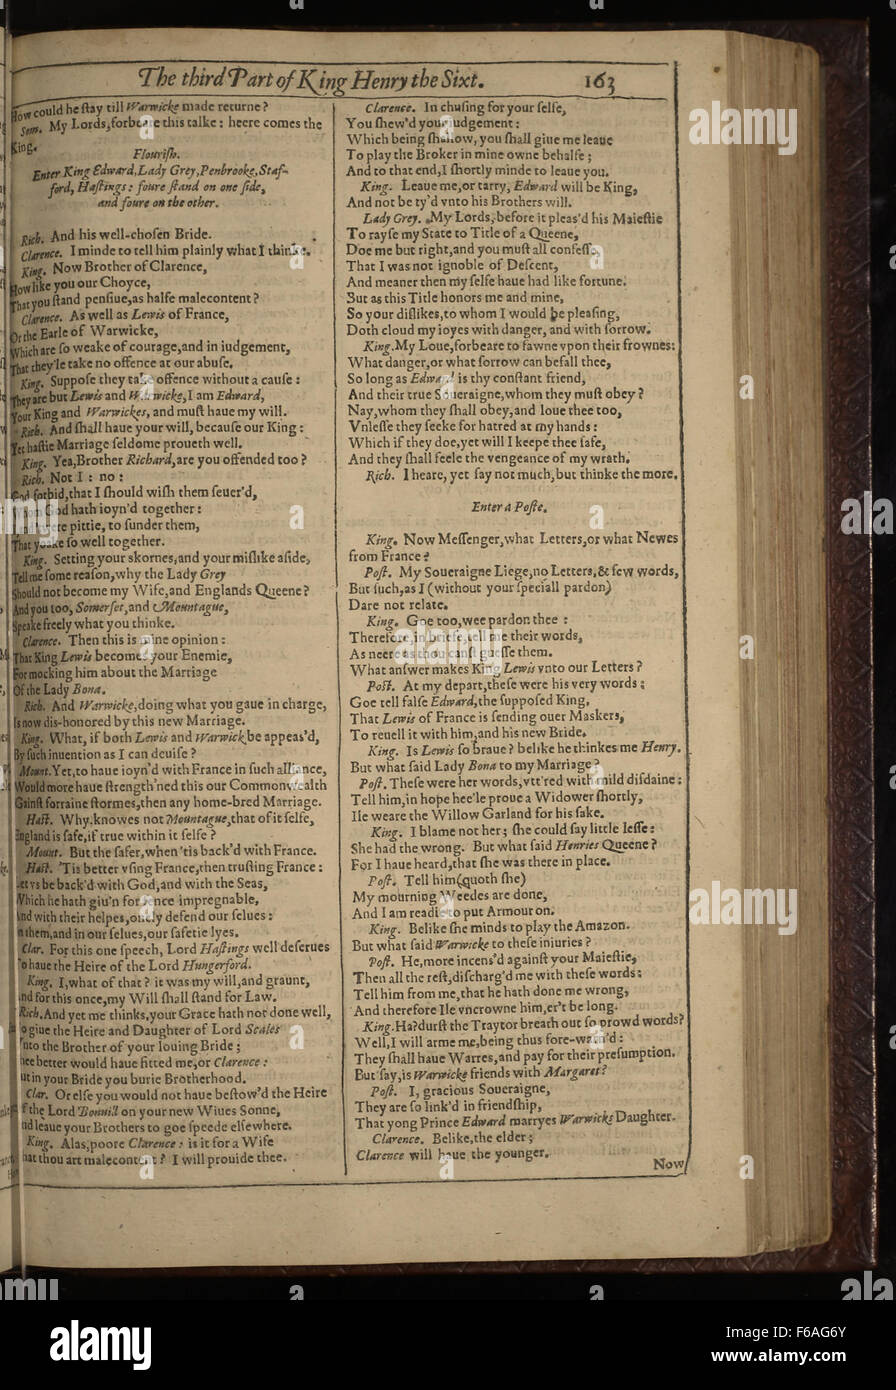 The third Part of King Henry the Sixt. 163
How could he ſtay till Warwicke made returne?
Som. My Lords, forbeare this talke: heere comes the
King.
Flouriſh.
Enter King Edward, Lady Grey, Penbrooke, Staf-
ford, Haſtings: foure ſtand on one ſide,
and foure on the other.
Rich. And his well-choſen Bride.
Clarence. I minde to tell him plainly what I thinke.
King. Now Brother of Clarence,
How like you our Choyce,
That you ſtand penſiue, as halfe malecontent?
Clarence. As well as Lewis of France,
Or the Earle of Warwicke,
Which are ſo weake of courage, and in iudgement,
That they'le take no offence at our abuſe.
King. Suppoſe they take offence without a cauſe:
They are but Lewis and Warwicke, I am Edward,
Your King and Warwickes, and muſt haue my will.
Rich. And ſhall haue your will, becauſe our King:
Yet haſtie Marriage ſeldome proueth well.
King. Yea, Brother Richard, are you offended too?
Rich. Not I: no:
God forbid, that I ſhould wiſh them ſeuer'd,
Whom God hath ioyn'd together:
pittie, to ſunder them,
That yoake ſo well together.
King. Setting your skornes, and your miſlike aſide,
Tell me ſome reaſon, why the Lady Grey
Should not become my Wife, and Englands Queene?
And you too, Somerſet, and Mountague,
Speake freely what you thinke.
Clarence. Then this is mine opinion:
That King Lewis becomes your Enemie,
For mocking him about the Marriage
Of the Lady Bona.
Rich. And Warwicke, doing what you gaue in charge,
Is now dis-honored by this new Marriage.
King. What, if both Lewis and Warwick be appeas'd,
By ſuch inuention as I can deuiſe?
Mount. Yet, to haue ioyn'd with France in ſuch alliance,
Would more haue ſtrength'ned this our Commonwealth
Gainſt forraine ſtormes, then any home-bred Marriage.
Haſt. Why, knowes not Mountague, that of it ſelfe,
England is ſafe, if true within it ſelfe?
Mount. But the ſafer, when 'tis back'd with France.
Haſt. 'Tis better vſing France, then truſting France:
Let vs be back'd with God, and with the Seas,
Which he hath giu'n for fence impregnable,
And with their helpes, onely defend our ſelues:
In them, and in our ſelues, our ſafetie lyes.
Clar. For this one ſpeech, Lord Haſtings well deſerues
To haue the Heire of the Lord Hungerford.
King. I, what of that? it was my will, and graunt,
And for this once, my Will ſhall ſtand for Law.
Rich. And yet me thinks, your Grace hath not done well,
To giue the Heire and Daughter of Lord Scales
Vnto the Brother of your louing Bride;
Shee better would haue fitted me, or Clarence:
But in your Bride you burie Brotherhood.
Clar. Or elſe you would not haue beſtow'd the Heire
Of the Lord Bonuill on your new Wiues Sonne,
And leaue your Brothers to goe ſpeede elſewhere.
King. Alas, poore Clarence: is it for a Wife
That thou art malecontent? I will prouide thee.
Clarence. In chuſing for your ſelfe,
You ſhew'd your iudgement:
Which being ſhallow, you ſhall giue me leaue
To play the Broker in mine owne behalfe;
And to that end, I ſhortly minde to leaue you.
King. Leaue me, or tarry, Edward will be King,
And not be ty'd vnto his Brothers will.
Lady Grey. My Lords, before it pleas'd his Maieſtie
To rayſe my State to Title of a Queene,
Doe me but right, and you muſt all confeſſe,
That I was not ignoble of Deſcent,
And meaner then my ſelfe haue had like fortune.
But as this Title honors me and mine,
So your diſlikes, to whom I would be pleaſing,
Doth cloud my ioyes with danger, and with ſorrow.
King. My Loue, forbeare to fawne vpon their frownes:
What danger, or what ſorrow can befall thee,
So long as Edward is thy conſtant friend,
And their true Soueraigne, whom they muſt obey?
Nay, whom they ſhall obey, and loue thee too,
Vnleſſe they ſeeke for hatred at my hands:
Which if they doe, yet will I keepe thee ſafe,
And they ſhall feele the vengeance of my wrath.
Rich. I heare, yet ſay not much, but thinke the more.
Enter a Poſte.
King. Now Meſſenger, what Letters, or what Newes
from France?
Poſt. My Soueraigne Liege, no Letters, & few words,
But ſuch, as I (without your ſpeciall pardon)
Dare not relate.
King. Goe too, wee pardon thee:
Therefore, in briefe, tell me their words,
As neere as thou canſt gueſſe them.
What anſwer makes King Lewis vnto our Letters?
Poſt. At my depart, theſe were his very words:
Goe tell falſe Edward, the ſuppoſed King,
That Lewis of France is ſending ouer Maskers,
To reuell it with him, and his new Bride.
King. Is Lewis ſo braue? belike he thinkes me Henry.
But what ſaid Lady Bona to my Marriage?
Poſt. Theſe were her words, vtt'red with mild diſdaine:
Tell him, in hope hee'le proue a Widower ſhortly,
Ile weare the Willow Garland for his ſake.
King. I blame not her; ſhe could ſay little leſſe:
She had the wrong. But what ſaid Henries Queene?
For I haue heard, that ſhe was there in place.
Poſt. Tell him (quoth ſhe)
My mourning Weedes are done,
And I am readie to put Armour on.
King. Belike ſhe minds to play the Amazon.
But what ſaid Warwicke to theſe iniuries?
Poſt. He, more incens'd againſt your Maieſtie,
Then all the reſt, diſcharg'd me with theſe words:
Tell him from me, that he hath done me wrong,
And therefore Ile vncrowne him, er't be long.
King. Ha? durſt the Traytor breath out ſo prowd words?
Well, I will arme me, being thus fore-warn'd:
They ſhall haue Warres, and pay for their preſumption.
But ſay, is Warwicke friends with Margaret?
Poſt. I, gracious Soueraigne,
They are ſo link'd in friendſhip,
That yong Prince Edward marryes Warwicks Daughter.
Clarence. Belike, the elder;
Clarence will haue the younger.
Now
alamy stock photo
F6AG6Y
www.alamy.com